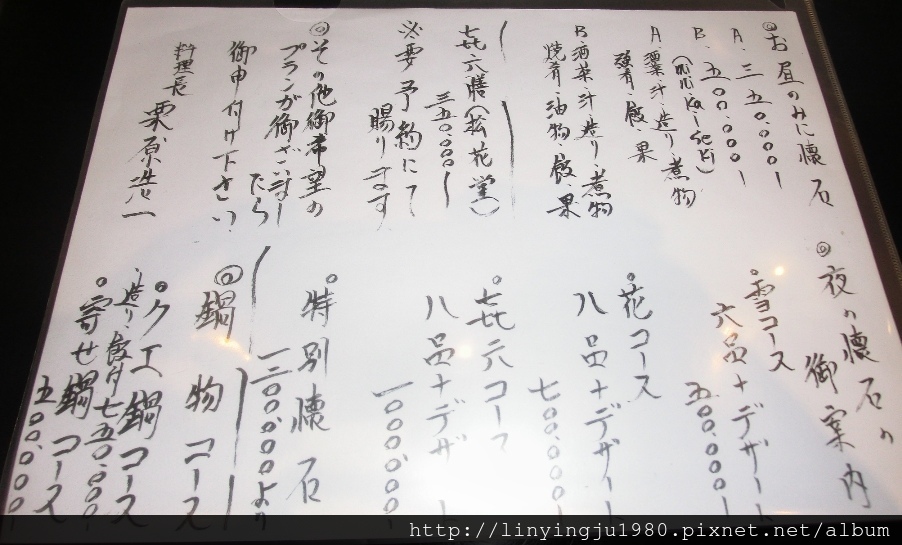 ◎お昼のみに懐石
A. 三五〇〇.〇〇〇ー
B. 五〇〇.〇〇〇ー
(ミニKaiseki)
A. 菜汁・造り・煮物
強肴・飯・果
B. 酒菜・汁・造り・煮物
焼肴・油物・飯・果
㐂六膳(松花堂)
三五〇.〇〇〇ー
※要予約にて
賜ります
◎その他御希望の
プランが御ざいましたら
御申付け下さい
料理長 栗原浩一
◎夜の懐石の
御案内
○雪コース
六品+デザート
五〇〇.〇〇〇ー
○花コース
八品+デザート
七〇〇.〇〇〇ー
○㐂六コース
八品+デザート
一〇〇〇.〇〇〇ー
○特別懐石
一二〇〇.〇〇〇より
◎鍋物コース
○クエ鍋コース
造り・飯付七五〇.〇〇〇
○寄せ鍋コース
五〇〇.〇〇〇
http://linyingju1980.pixnet.net/album